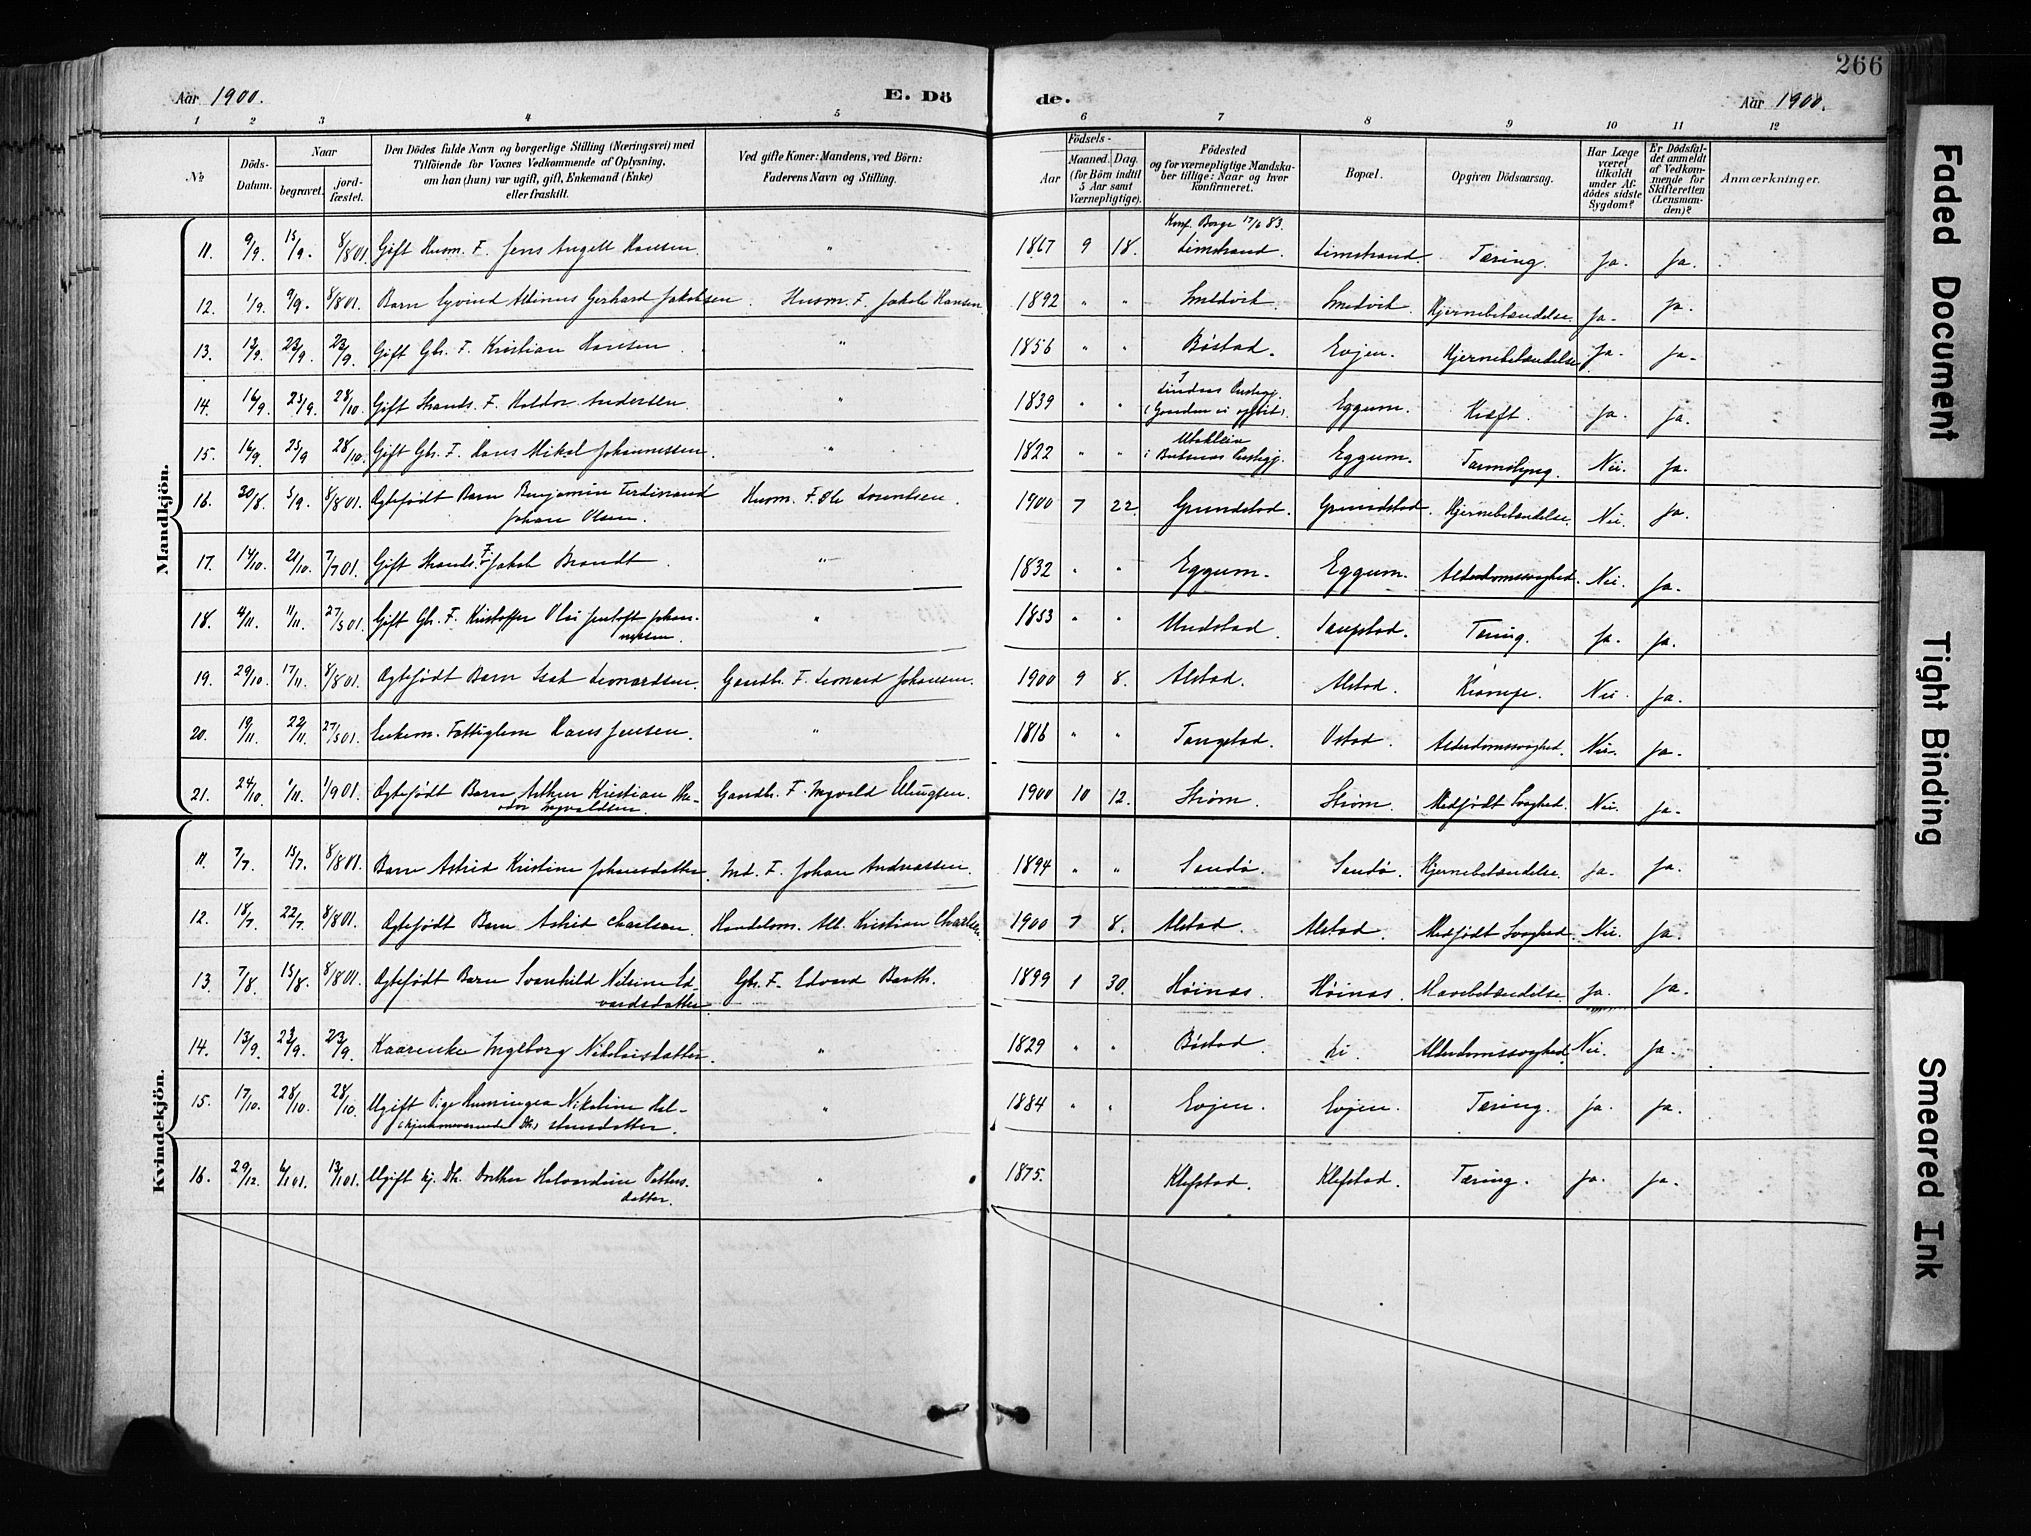 266
Aar 1900. E. Dö de. Aar 1900.
1 2 3 4 5 6 7 8 9 10 11 12
№
Döds-Datum.
Naar
begravet.
jord-fæstet.
Den Dödes fulde Navn og borgerlige Stilling (Næringsvei) med
Tilföiende for Voxnes Vedkommende af Oplysning,
om han (hun) var ugift, gift, Enkemand (Enke)
eller fraskilt.
Ved gifte Koner: Mandens, ved Börn:
Faderens Navn og Stilling.
Födsels-
Aar
Maaned. Dag.
(for Börn indtil
5 Aar samt
Værnepligtige).
Födested
og for værnepligtige Mandska-
ber tillige: Naar og hvor
Konfirmeret.
Bopæl.
Opgiven Dödsaarsag.
Har Læge
været
tilkaldt
under Af-
dödes sidste
Sygdom?
Er Dödsfal-
det anmeldt
af Vedkom-
mende for
Skifteretten
(Lensman-
den)?
Anmærkninger.
Mandkjön.
Konf. Borge 17/6 83.
11. 9/9. 15/9. 8/8 01. Gift Husm. F. Jens Angell Hansen " 1867 9 18. Limstrand. Limstrand. Tæring. Ja. Ja.
12. 1/9. 9/9. 8/8 01. Barn Eyvind Albinus Gerhard Jakobsen. Husm. F. Jakob Hansen 1892 " " Smedvik. Smedvik. Hjernebetændelse. Ja. Ja.
13. 13/9. 23/9. 23/9. Gift Gbr. F. Kristian Hansen. " 1856 " " Böstad. Evjen. Hjernebetændelse Ja. Ja.
14. 16/9. 23/9. 28/10. Gift Strands. F. Haldor Andersen. " 1839 " " Lindaas Prestegj. (Gaarden ei opgivt). Eggum. Kræft. Ja. Ja.
15. 16/9. 25/9 28/10. Gift Gbr. F. Hans Mikal Johannessen. " 1822 " " i Buksnæs Prestegj. Eggum. Tarmslyng. Nei. Ja.
16. 30/8. 5/9. 8/8 01. Ægtefødt Barn Benjamin Ferdinand
Johan Olsen. Husm. F. Ole Lorentsen. 1900 7 22. Grundstad. Grundstad. Hjernebetændelse. Nei. Ja.
17. 14/10. 21/10. 7/7 01. Gift Strands. F. Jakob Brandt. " 1832 " " Eggum. Eggum. Alderdomssvaghed. Nei. Ja.
18. 4/11. 11/11. 27/5 01. Gift Gbr. F. Kristoffer Olai Jentoft Johan-
nessen. " 1853 " " Undstad. Saupstad. Tæring. Ja. Ja.
19. 29/10. 17/11. 8/8 01. Ægtefødt Barn Isak Leonardsen. Gaardbr. F. Leonard Johansen. 1900 9 8. Alstad. Alstad. Krampe. Nei. Ja.
20. 19/11. 22/11. 27/5 01. Enkem. Fattiglem Hans Jensen. " 1816 " " Tangstad. Ostad. Alderdomssvaghed. Nei. Ja.
21. 24/10. 1/11. 1/9 01. Ægtefødt Barn Arthur Kristian The-
odor Ingvaldsen. Gaardbr. F. Ingvald Ellingsen. 1900 10 12. Strøm. Strøm. Medfødt Svaghed. Nei. Ja.
Kvindekjön.
11. 7/7. 15/7. 8/8 01. Barn Astrid Kristine Johansdatter. Ind. F. Johan Andreassen. 1894 " " Sandø. Sandø. Hjernebetændelse. Ja. Ja.
12. 18/7. 22/7. 8/8 01. Ægtefødt Barn Astrid Charlsen. Handelsm. Alb. Kristian Charlsen. 1900 7 8. Alstad. Alstad. Medfødt Svaghed. Nei. Ja.
13. 7/8. 15/8. 8/8 01. Ægtefødt Barn Svanhild Nilsine Ed-
vardsdatter. Gbr. F. Edvard Barth. 1899 1 30. Høinæs. Høinæs. Mavebetændelse. Ja. Ja.
14. 13/9. 23/9. 23/9. Kaarenke Ingeborg Nikolaisdatter. " 1829 " " Böstad. Li Alderdomssvaghed. Nei. Ja.
15. 17/10. 28/10. 28/10. Ugift Pige Hemmingea Nikoline Hel-
(hjemmeværende Dtr.) mersdatter. " 1884 " " Evjen. Evjen. Tæring. Ja. Ja.
16. 29/12. 6/1 01. 13/1 01. Ugift hj. Dtr. Dorthea Halvardine Petters-
datter. " 1875. Klefstad. Klefstad. Tæring. Ja. Ja.
Faded Document
Tight Binding
Smeared Ink